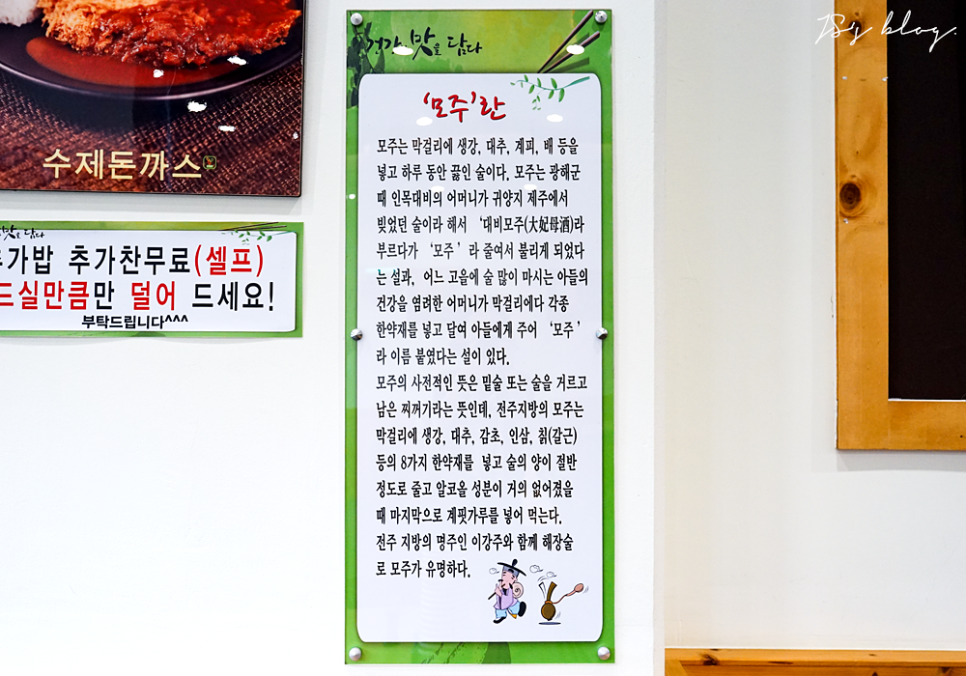 JS's blog.
건강한 맛을 담다
'모주'란
모주는 막걸리에 생강, 대추, 계피, 배 등을
넣고 하루 동안 끓인 술이다. 모주는 광해군
때 인목대비의 어머니가 귀양지 제주에서
빚었던 술이라 해서 '대비모주(大妃母酒)라
부르다가 '모주' 라 줄여서 불리게 되었다
는 설과, 어느 고을에 술 많이 마시는 아들의
건강을 염려한 어머니가 막걸리에다 각종
한약재를 넣고 달여 아들에게 주어 '모주'
라 이름 붙였다는 설이 있다.
모주의 사전적인 뜻은 밑술 또는 술을 거르고
남은 찌꺼기라는 뜻인데, 전주지방의 모주는
막걸리에 생강, 대추, 감초, 인삼, 칡(갈근)
등의 8가지 한약재를 넣고 술의 양이 절반
정도로 줄고 알코올 성분이 거의 없어졌을
때 마지막으로 계핏가루를 넣어 먹는다.
전주 지방의 명주인 이강주와 함께 해장술
로 모주가 유명하다.
수제돈까스
맛을 담다
추가밥 추가찬무료(셀프)
드실만큼만 덜어 드세요!
부탁드립니다^^^